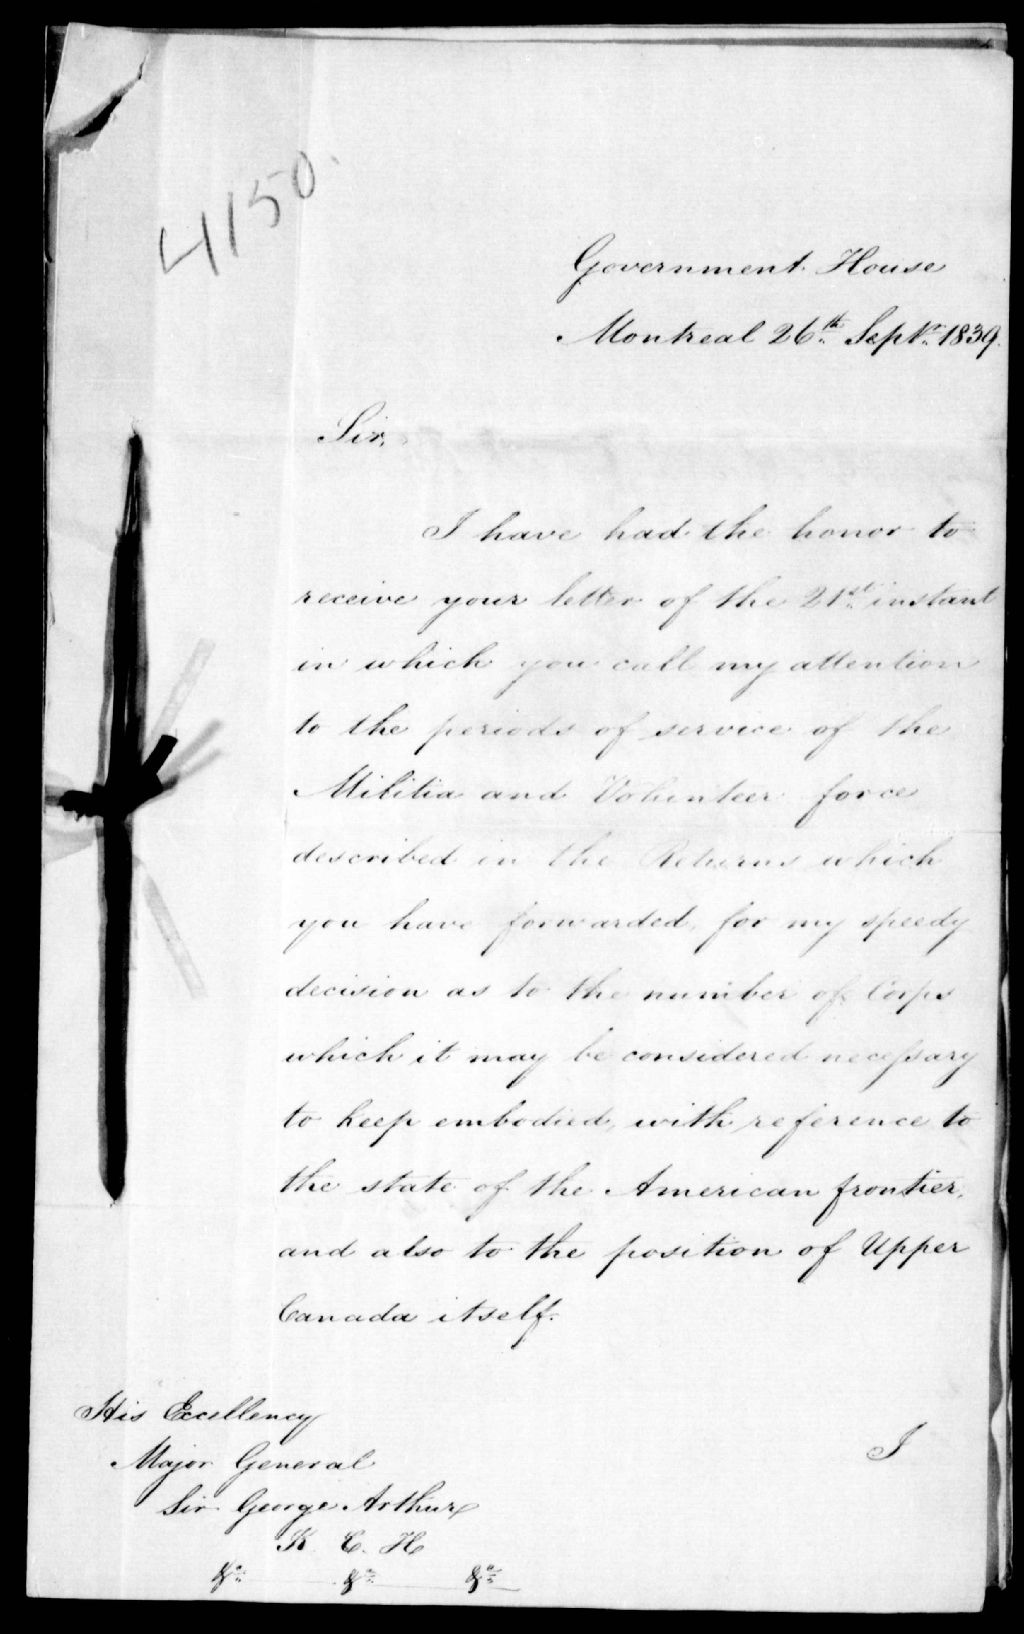 4150.
Government House
Montreal 26th Septr. 1839.
Sir,
I have had the honor to
receive your letter of the 21st instant
in which you call my attention
to the periods of service of the
Militia and Volunteer force
described in the Returns which
you have forwarded, for my speedy
decision as to the number of Corps
which it may be considered necessary
to keep embodied, with reference to
the state of the American frontier,
and also to the position of Upper
Canada itself.
His Excellency
Major General
Sir George Arthur
K. C. H
&c. &c. &c.
I